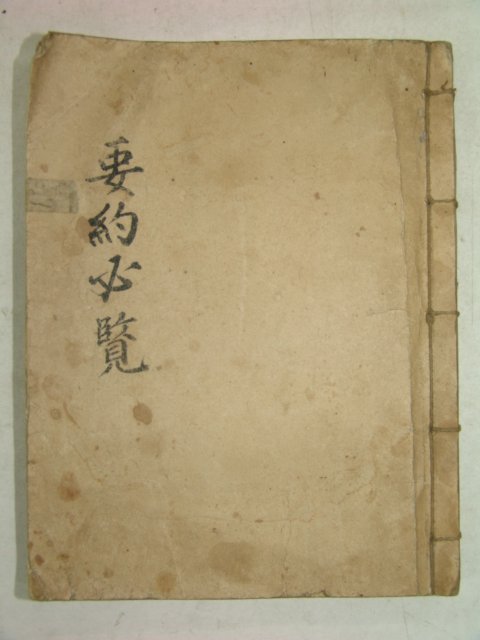 要約必覽